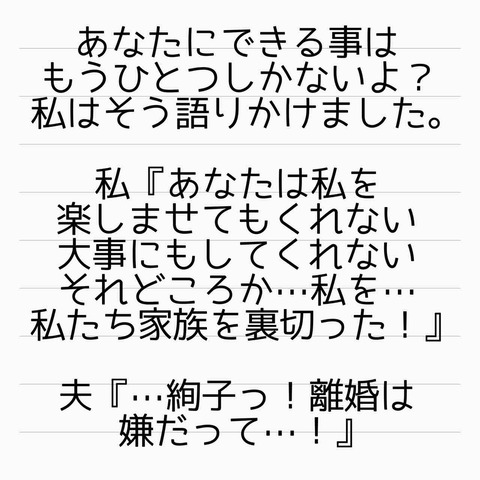 あなたにできる事は
もうひとつしかないよ？
私はそう語りかけました。
私『あなたは私を
楽しませてもくれない
大事にもしてくれない
それどころか…私を…
私たち家族を裏切った！』
夫『…絢子っ！離婚は
嫌だって…！』